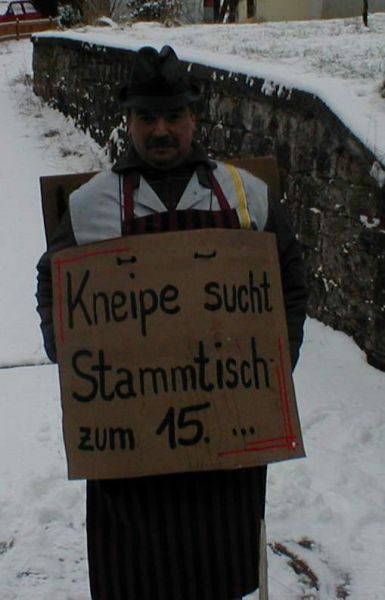 Kneipe sucht
Stammtisch-
zum 15. ...